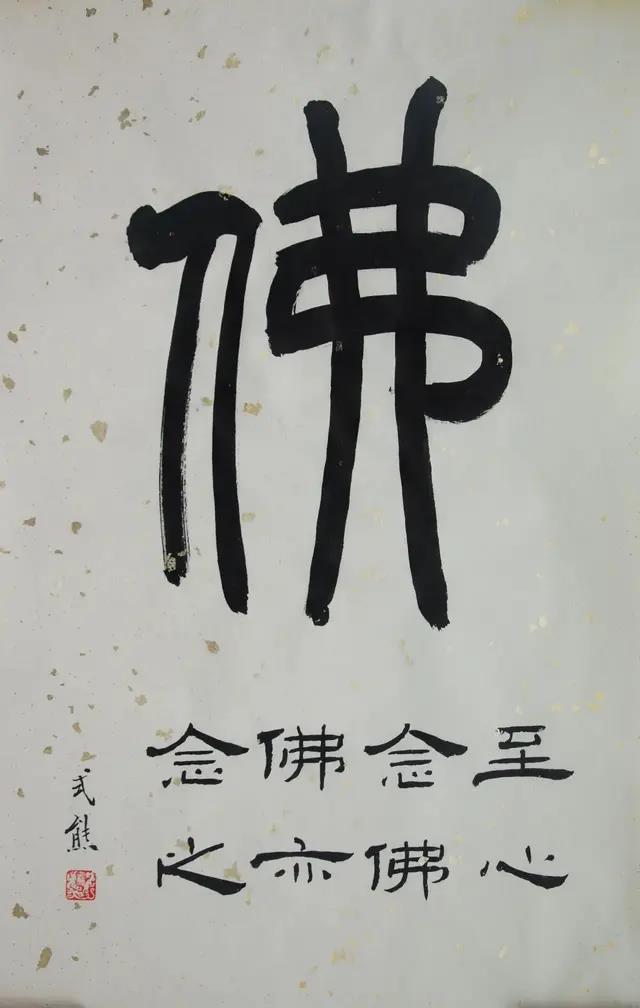 佛
至心
念佛
佛亦
念之
式熊